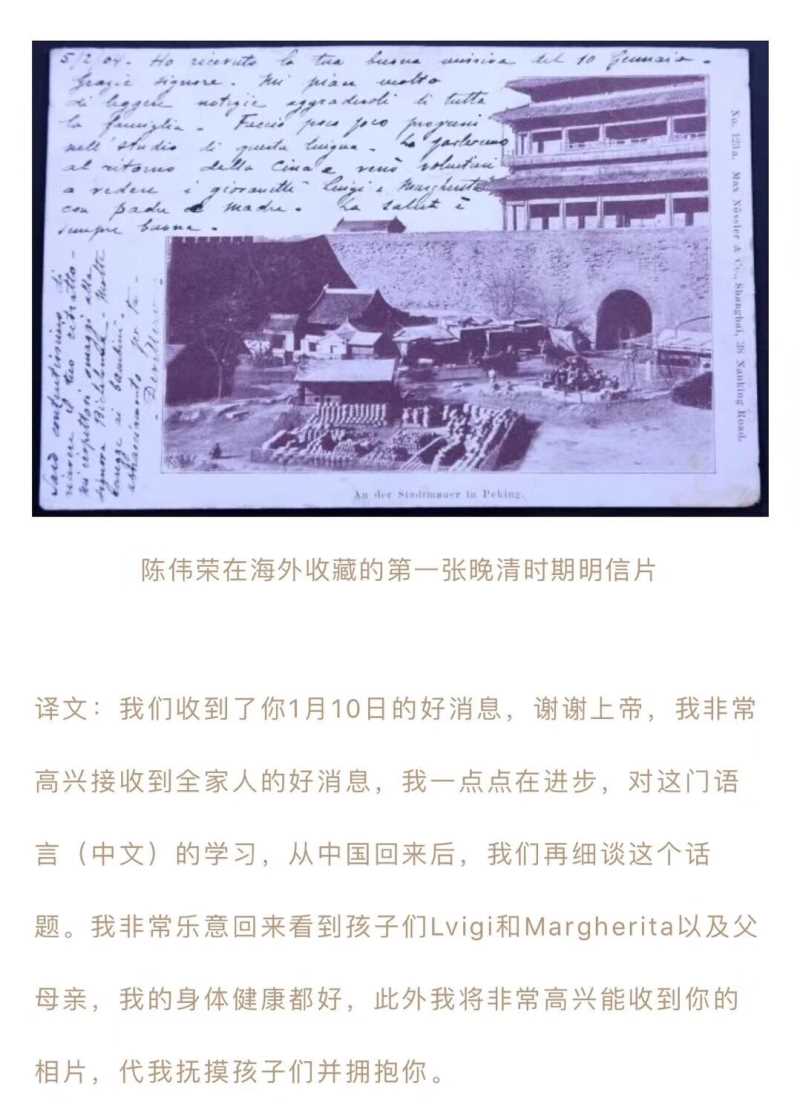 5/2/04. Ho ricevuto la tua buona missiva del 10 Gennaio.
Grazie signore. Mi piace molto
di leggere notizie aggradevoli di tutta
la famiglia. Faccio poco poco progressi
nell'studio di questa lingua. La
al ritorno della Cina e
a vedere i giovanetti Luigi e Margherita
con padre e madre. La salute è
sempre buona.
Sarò di
il tuo ritratto.
omaggi alla
signora Molte
ai bambini.
per te.
No. 123a. Max Nössler & Co., Shanghai, 38 Nanking Road.
An der Stadtmauer in Peking.
陈伟荣在海外收藏的第一张晚清时期明信片
译文：我们收到了你1月10日的好消息，谢谢上帝，我非常
高兴接收到全家人的好消息，我一点点在进步，对这门语
言（中文）的学习，从中国回来后，我们再细谈这个话
题。我非常乐意回来看到孩子们Lvigi和Margherita以及父
母亲，我的身体健康都好，此外我将非常高兴能收到你的
相片，代我抚摸孩子们并拥抱你。